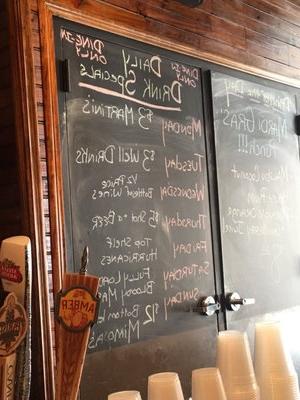 DINE-IN
ONLY
DAILY
DRINK SPECIALS
DINE-IN
ONLY
MONDAY $3 MARTINI'S
TUESDAY $3 WELL DRINKS
WEDNESDAY 1/2 PRICE
BOTTLED WINES
THURSDAY $5 BEER
FRIDAY TOP SHELF
HURRICANES
SATURDAY FULLY LOAD
BLOODY MA
SUNDAY $12 BOTTOML
MIMOSA'S
THE DAY
MARDI GRAS
Punch!!!
Malibu Coconut
Rum
Orange
Juice
AMBER